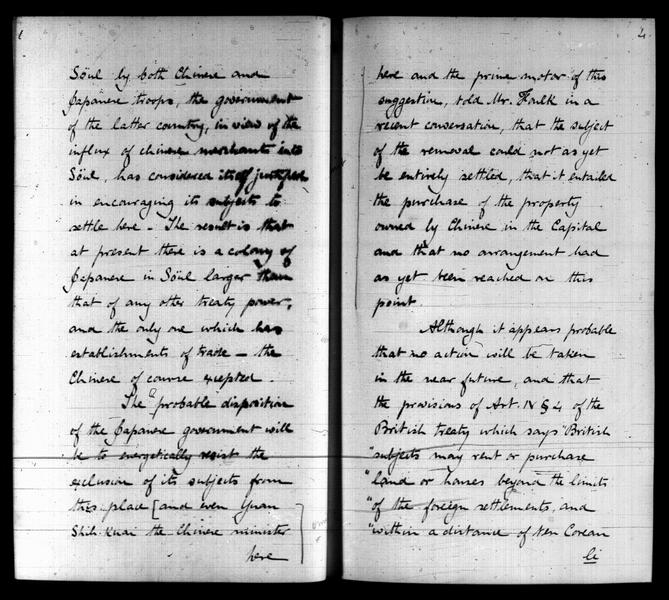 Söul by both Chinese and
Japanese troops, the government
of the latter country, in view of the
influx of chinese merchants into
Söul, has considered itself justified
in encouraging its subjects to
settle here – The result is that
at present there is a colony of
Japanese in Söul larger than
that of any other treaty power,
and the only one which has
establishments of trade – the
Chinese of course excepted.
The probable disposition
of the Japanese government will
be to energetically resist the
exclusion of its subjects from
this place [and even Yuan
Shih Kuai the Chinese minister
here
4
here and the prime motor of this
suggestion, told Mr. Foulk in a
recent conversation, that the subject
of the removal could not as yet
be entirely settled, that it entailed
the purchase of the property
owned by Chinese in the Capital
and that no arrangement had
as yet been reached on this
point.
Although it appears probable
that no action will be taken
in the near future, and that
the provisions of Art. IV § 4 of the
British treaty which says "British
"subjects may rent or purchase
"land or houses beyond the limits
"of the foreign settlements, and
"within a distance of ten Corean
li